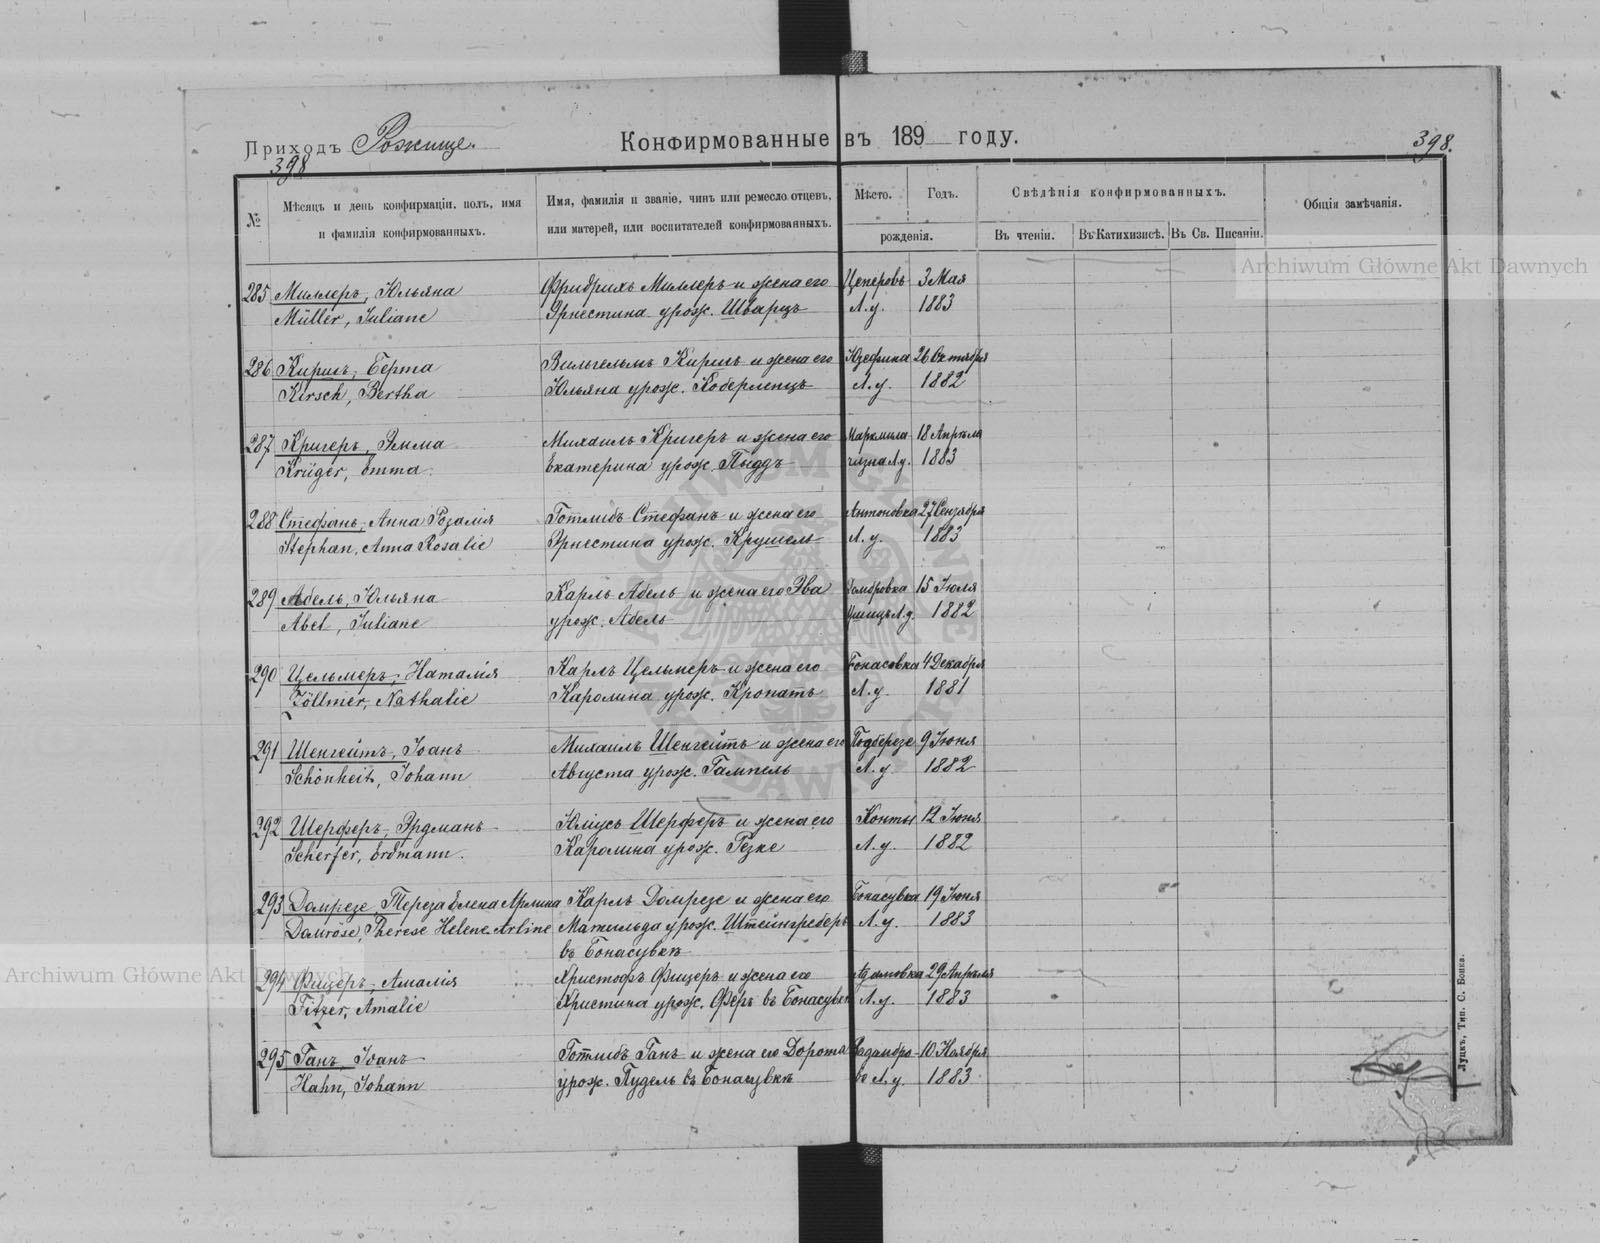 Приходъ Рожище.
Конфирмованные въ 189 году.
398.
398
№
Мѣсяцъ и день конфирмаціи, полъ, имя
и фамилія конфирмованныхъ.
Имя, фамилія и званіе, чинъ или ремесло отцевъ,
или матерей, или воспитателей конфирмованныхъ.
Мѣсто.
Годъ.
рожденія.
Свѣдѣнія конфирмованныхъ.
Въ чтеніи.
Въ Катихизисѣ.
Въ Св. Писаніи.
Общія замѣчанія.
285 Миллеръ, Юльяна Фридрихъ Миллеръ и жена его Цеперовъ 3 Мая
Müller, Juliane Эрнестина урож. Шварцъ Л. у. 1883
286 Киршъ, Берта Вильгельмъ Киршъ и жена его Юзефина 26 Октября
Kirsch, Bertha Юльяна урож. Коберлецъ Л. у. 1882
287 Кригеръ, Эмма Михаилъ Кригеръ и жена его 18 Апрѣля
Krüger, Emma. Екатерина урож. Пыддъ Л. у. 1883
288 Стефанъ, Анна Розалія Готлибъ Стефанъ и жена его Антоновка 27 Сентября
Stephan, Anna Rosalie Эрнестина урож. Крушель Л. у. 1883
289 Абель, Юльяна Карлъ Абель и жена его Эва Домбровка 15 Іюля
Abel, Juliane урож. Абель Л. у. 1882
290 Цельмеръ, Наталія Карлъ Цельмеръ и жена его Бонасовка 4 Декабря
Zöllmer, Nathalie Каролина урож. Кропатъ Л. у. 1881
291 Шенгейтъ, Іоанъ Михаилъ Шенгейтъ и жена его Подберезе 9 Іюня
Schönheit, Johann Августа урож. Гампель Л. у. 1882
292 Шерферъ, Эрдманъ Юліусъ Шерферъ и жена его Конты 12 Іюня
Scherfer, Erdmann. Каролина урож. Гезке Л. у. 1882
293 Домрезе, Тереза Елена Арлина Карлъ Домрезе и жена его Бонасувка 19 Іюня
Domröse, Therese Helene Arline Матильда урож. Штейнгреберъ Л. у. 1883
въ Бонасувкѣ
294 Фицеръ, Амалія Христофъ Фицеръ и жена его Адамовка 29 Апрѣля
Fitzer, Amalie Христина урож. Феръ въ Бонасувкѣ Л. у. 1883
295 Ганъ, Іоанъ Готлибъ Ганъ и жена его Дорота 10 Ноября
Hahn, Johann урож. Пудель въ Бонасувкѣ Л. у. 1883
Луцкъ, Тип. С. Бонка.
Archiwum Główne Akt Dawnych
Archiwum Główne Akt Dawnych
ARCHIWUM GŁÓWNE AKT DAWNYCH